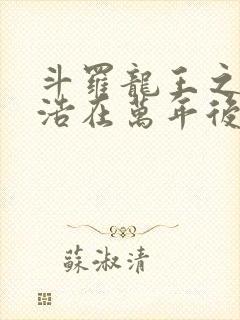 斗羅龍王之
浩在萬年後
蘇淑清